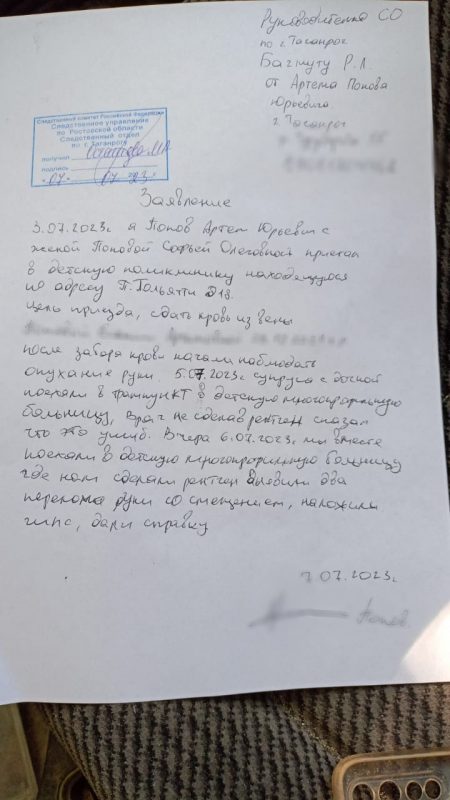 Руководителю СО
по г. Таганрог
Багмуту Р.Л.
от Артема Попова
Юрьевича.
г. Таганрог
Следственный комитет Российской Федерации
Следственное управление
по Ростовской области
Следственный отдел
по г. Таганрогу
получил
подпись
"07" 07 23
Заявление
3.07.2023г я Попов Артем Юрьевич с
женой Поповой Софьей Олеговной приехал
в детскую поликлинику находящуюся
по адресу П. Тольятти
цель приезда, сдать кровь из вены
после забора крови начали наблюдать
опухание руки. 5.07.2023г супруга с дочкой
поехали в травмпункт в детскую многопрофильную
больницу, врач не сделав рентген сказал
что это ушиб. Вчера 6.07.2023г мы вместе
поехали в детскую многопрофильную больницу
где нам сделали рентген выявили два
перелома руки со смещением, наложили
гипс, дали справку
7.07.2023г
Попов.